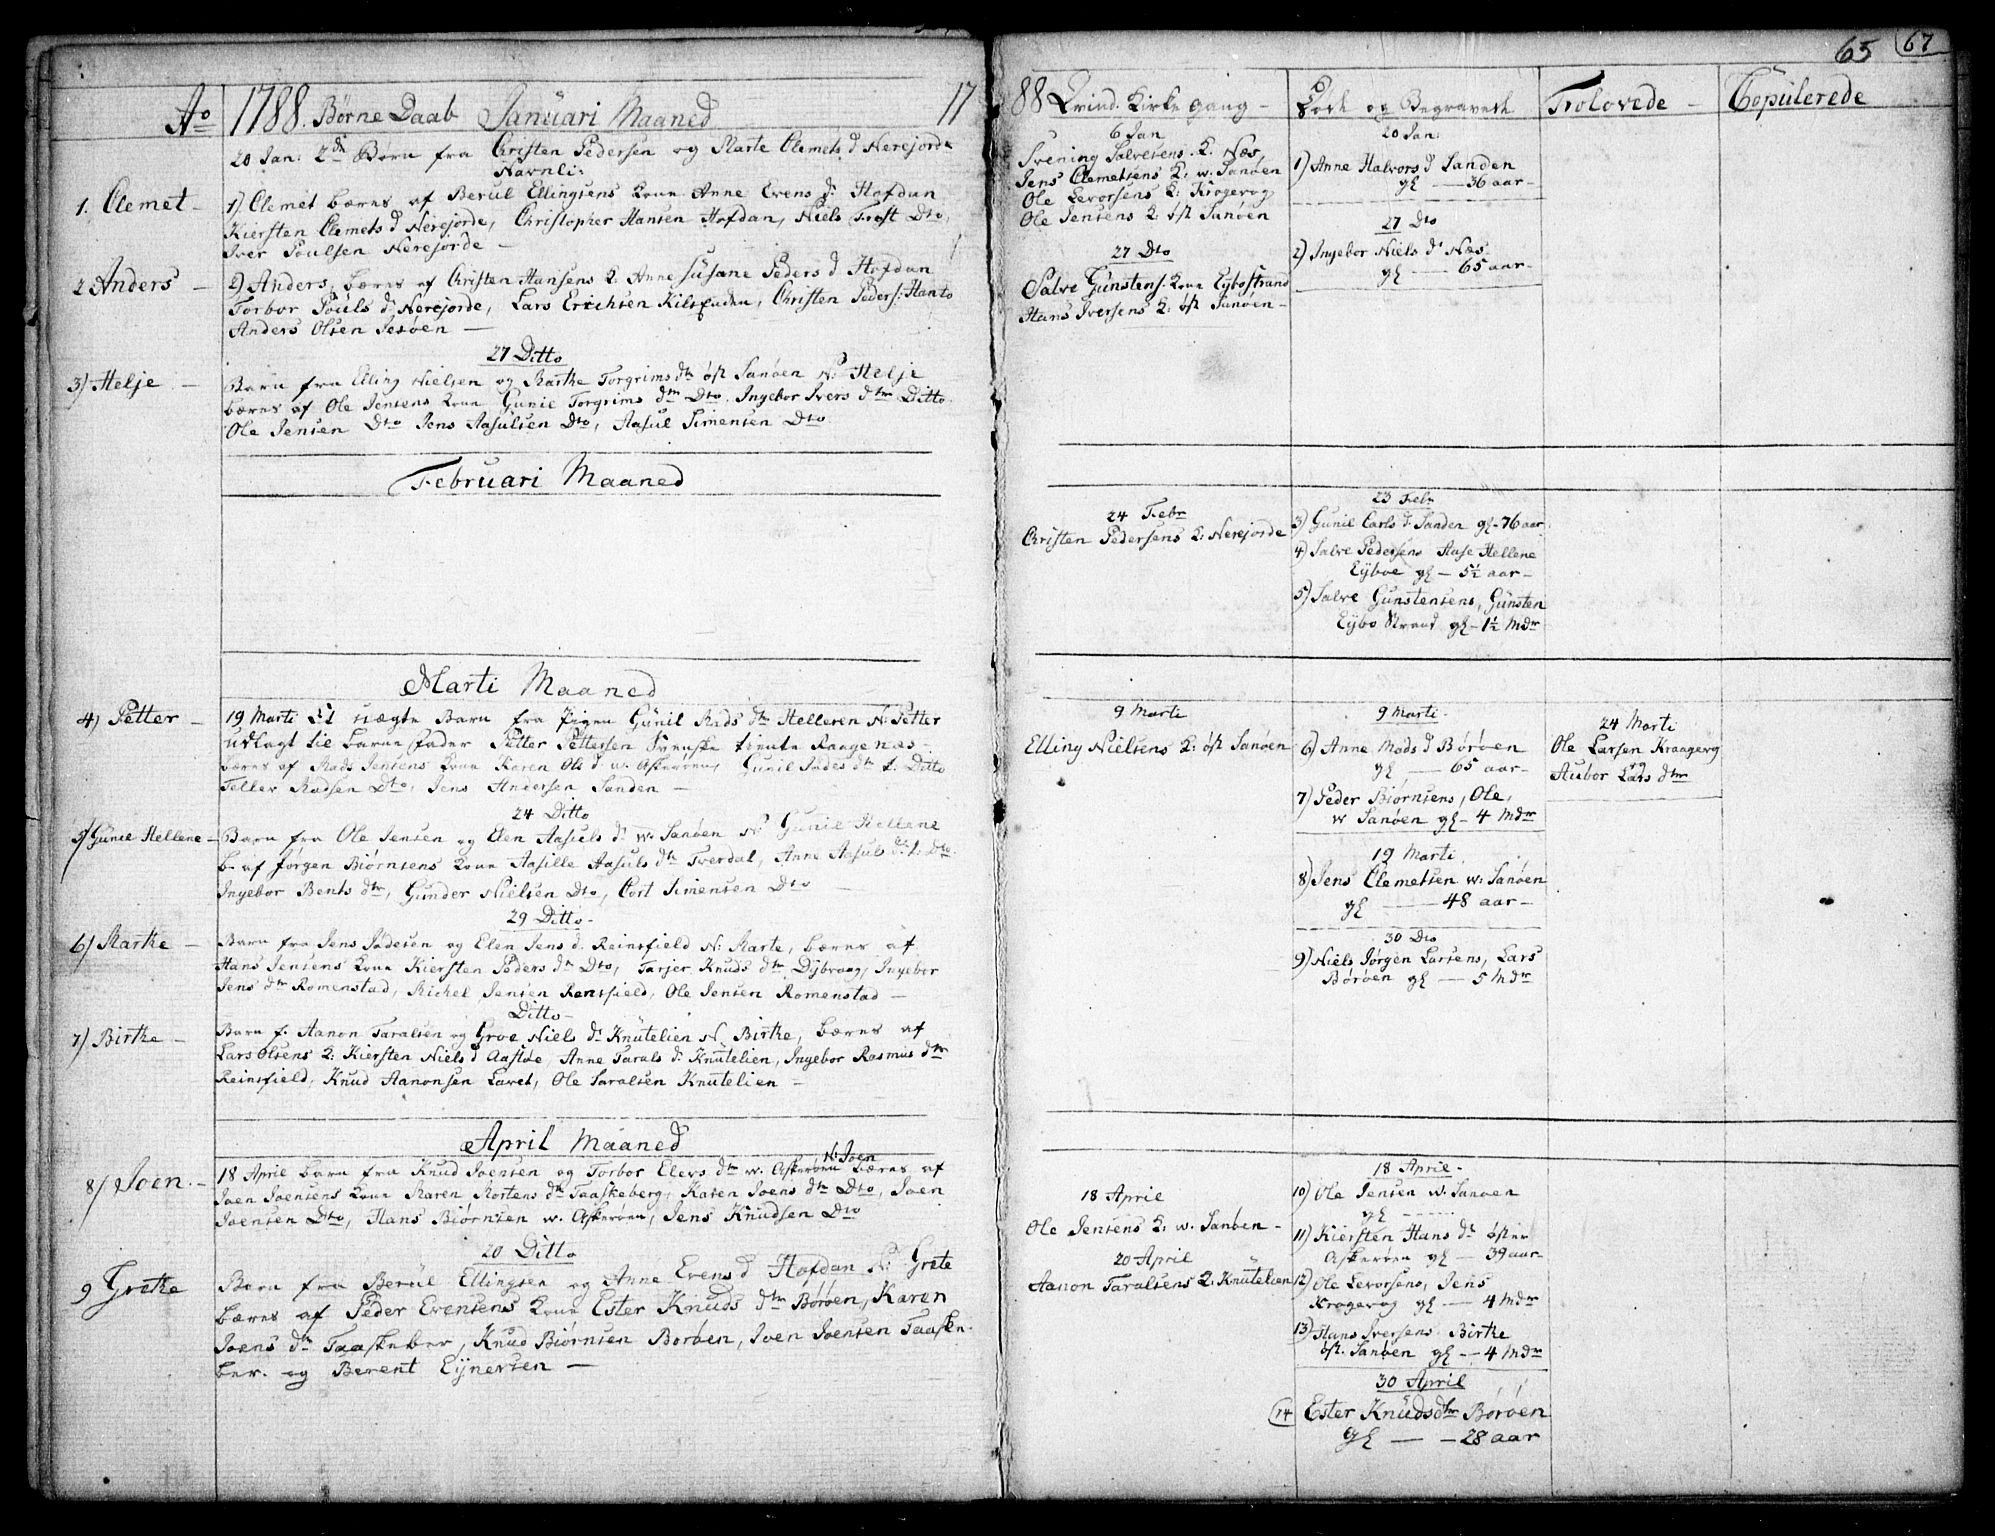 65 67
Ao 1788. Børne Daab Januari Maaned
20 Jan: 2de Børn fra Christen Pedersen og Marte Clemets d Nerejorde
Navnli:
1. Clemet – 1) Clemet bæres af Berul Ellingsens kone Anne Evens dr Hofdan
Kiersten Clemets d Nerejorde, Christopher Hansen Hofdan, Niels Trost Dto,
Iver Poulsen Nerejorde –
2 Anders – 2) Anders, bæres af Christen Hansens K. Anne Susane Peders d Hofdan
Torbor Pouls dr Nerejorde, Lars Erichsen Kilsfuden, Christen Peders: Hanto
Anders Olsen Jesøen –
27 Ditto
3) Helje – Barn fra Elling Nielsen og Marthe Torgrims dtr øst Sanøen N: Helje
bæres af Ole Jensens kone Gunil Torgrims dtr Dto, Ingebor Ivers dtr Ditto
Ole Jensen Dto Jens Aasulsen Dto, Aasul Simensen Dto
Februari Maaned
Marti Maaned
4) Petter – 19 Marti Et uægte Barn fra Pigen Gunil Mads dtr Helleren N: Petter
udlagt til barne fader Petter Pettersen Svenske tiente Raagenæs –
bæres af Mads Jensens kone Karen Ols d w. Askerøen, Gunil Jødes dtr Ditto
Tellev Madsen Dto, Jens Andersen Sanden –
24 Ditto
5) Gunil Hellene – Barn fra Ole Jensen og Elen Aasuls dr w. Sanøen N: Gunil Hellene
b. af Jørgen Biørnsens kone Aasille Aasuls dtr Tverdal, Anne Aasuls dtr Dto
Ingebor Bents dtr, Gunder Nielsen Dto, Cort Simensen Dto –
29 Ditto –
6) Marthe – Barn fra Jens Jødesen og Elen Jens d. Reinsfield N: Marte, bæres af
Hans Jensens kone Kiersten Peders dtr Dto, Tarjer Knuds dtr Dybvaag, Ingebor
Jens dtr Romenstad, Michel Jensen Rensfield, Ole Jensen Romenstad –
Ditto –
7) Birthe – Barn f. Aanon Taralsen og Groe Niels dr Knutelien N. Birthe, bæres af
Lars Olsens K: Kiersten Niels d Aastøe, Anne Tarals dr Knutelien, Ingebor Rasmus dtr
Reinsfield, Knud Aanonsen Lavet, Ole Taralsen Knutelien –
April Maaned
N: Joen
8) Joen. – 18 April barn fra Knud Joensen og Torbor Elevs dtr w. Askerøen bæres af
Joen Joensens kone Maren Mortens dtr Taaskeberg, Karen Joens dtr Dto, Joen
Joensen Dto, Hans Biørnsen w. Askerøen, Jens Knudsen Dto
20 Ditto
9 Grethe Barn fra Berul Ellingsen og Anne Evens d Hofdan N: Grete
bæres af Peder Evensens kone Ester Knuds dtr Børøen, Karen
Joens dtr Taaskeber, Knud Biørnsen Borøen, Joen Joensen Taaske-
ber. og Berent Eynersen –
1788 Qvind. Kirke gang –
6 Jan
Svening Salvesens. K. Næs
Jens Clemetsens K: w. Sanøen
Ole Levorsens K: Krogevog
Ole Jensens K: øst Sanøen
27 Dto
Salve Gunstens. kone Eybostrand
Hans Iversens K: øst Sanøen –
24 Febr
Christen Pedersens K: Nerejorde
9 Marti
Elling Nielsens K: øst Sanøen
18 April
Ole Jensens K: w. Sanøen –
20 April
Aanon Taralsens K. Knutelien
Døde og Begravede
20 Jan:
1) Anne Halvors d Sanden
gl — 36 aar –
27 Dto
2) Ingebor Niels dr Næs
gl — 65 aar –
23 Febr
3) Gunil Carls d: Sanden gl – 76 aar
4) Salve Pedersens Aase Hellene
Eyboe gl – 5½ aar –
5) Salve Gunstensens, Gunsten
Eybo Strand gl – 1½ Mdr
9 Marti.
6) Anne Mads d Børøen
gl — 65 aar –
7) Peder Biørnsens, Ole,
w Sanøen gl – 4 Mdr
19 Marti.
8) Jens Clemetsen w: Sanøen
gl — 48 aar –
30 Dto
9) Niels Jørgen Larsens, Lars
Børøen gl — 5 Mdr
18 April –
10) Ole Jensen w. Sanøen
gl - - - - -
11) Kiersten Hans dr øster
Askerøen gl – 39 aar –
12) Ole Levorsens, Jens
Krogevog gl — 4 Mdr
13) Hans Iversens Birthe
øst. Sanøen gl — 4 Mdr
30 April
14 Ester Knudsdtr Børøen
gl — – 28 aar
Trolovede –
24 Marti
Ole Larsen Kraagevog
og
Aubor Lars dtr
Copulerede